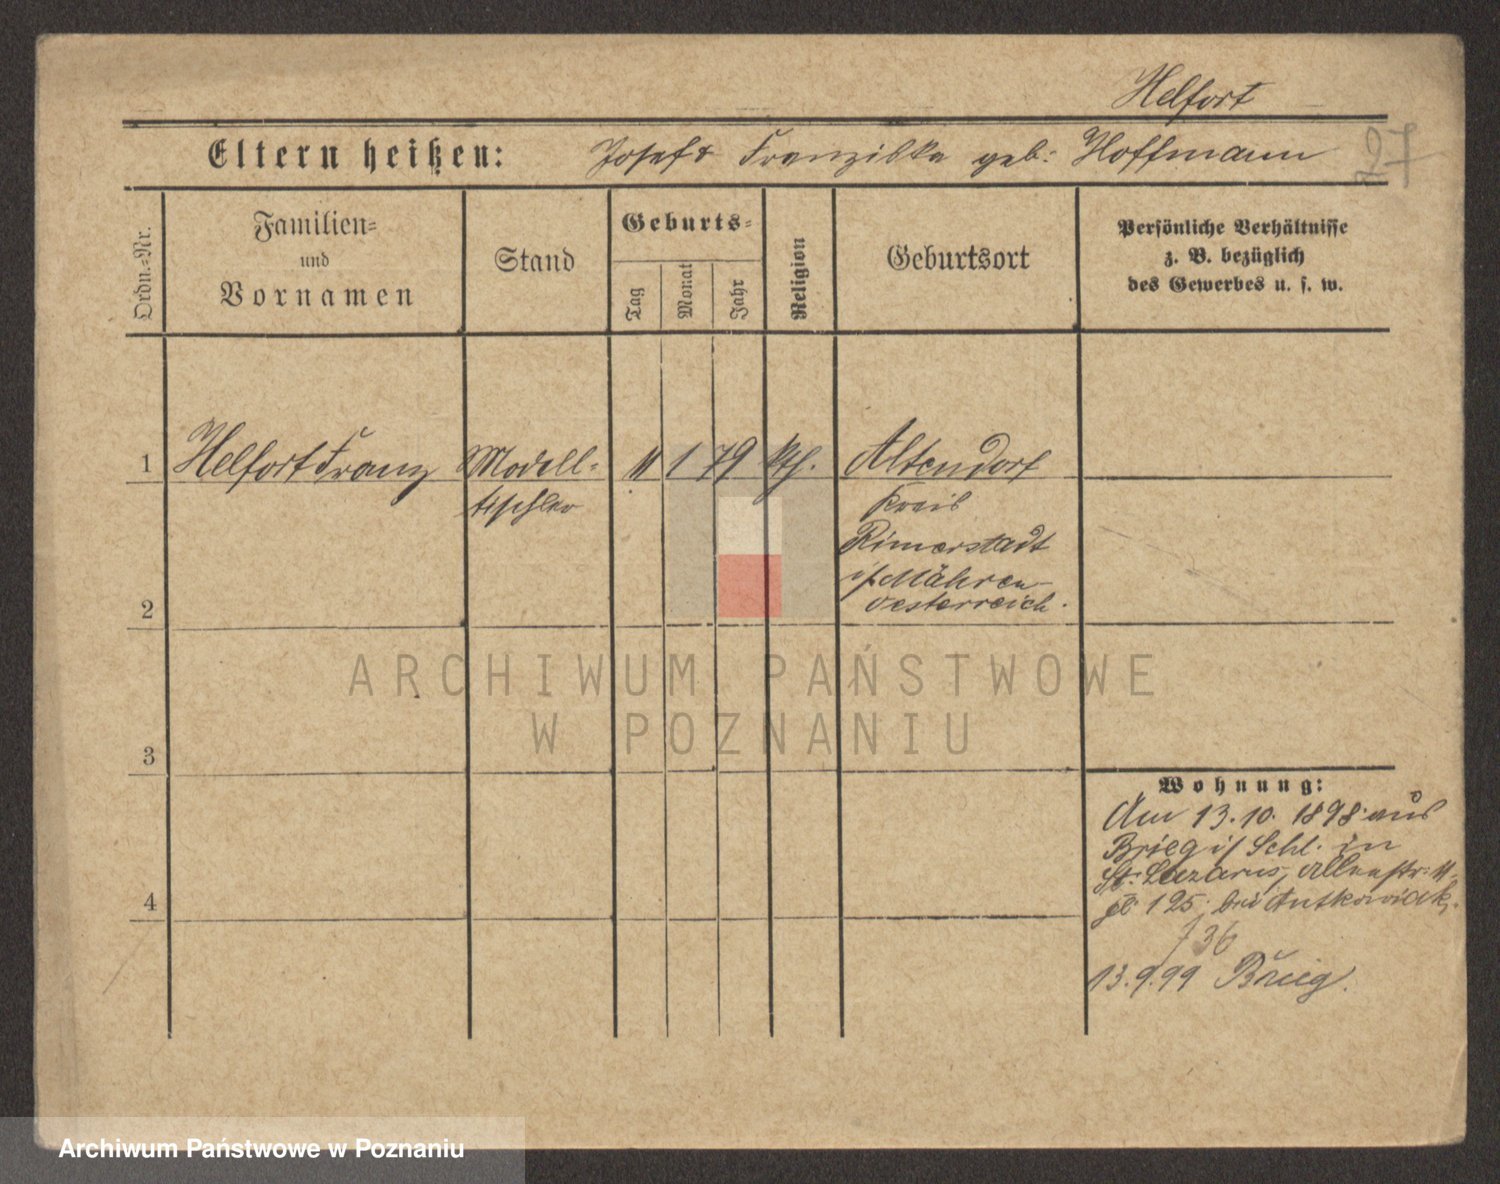 Helfort
Eltern heißen: Josef & Franziska geb: Hoffmann
27
Ordn.-Nr.
Familien-
und
Vornamen
Stand
Geburts-
Tag
Monat
Jahr
Religion
Geburtsort
Persönliche Verhältnisse
z. B. bezüglich
des Gewerbes u. s. w.
1 Helfort Franz Modell- 11 1 79 kth. Altendorf
tischler Kreis
Rimerstadt
i/Mähren
2 Oesterreich.
ARCHIWUM PAŃSTWOWE
W POZNANIU
3
Wohnung:
Am 13.10. 1898 aus
Brieg i/ Schl. in
St. Lazarus,
4 125, bei Antkowiak,
736
13.9.99 Brieg.
Archiwum Państwowe w Poznaniu